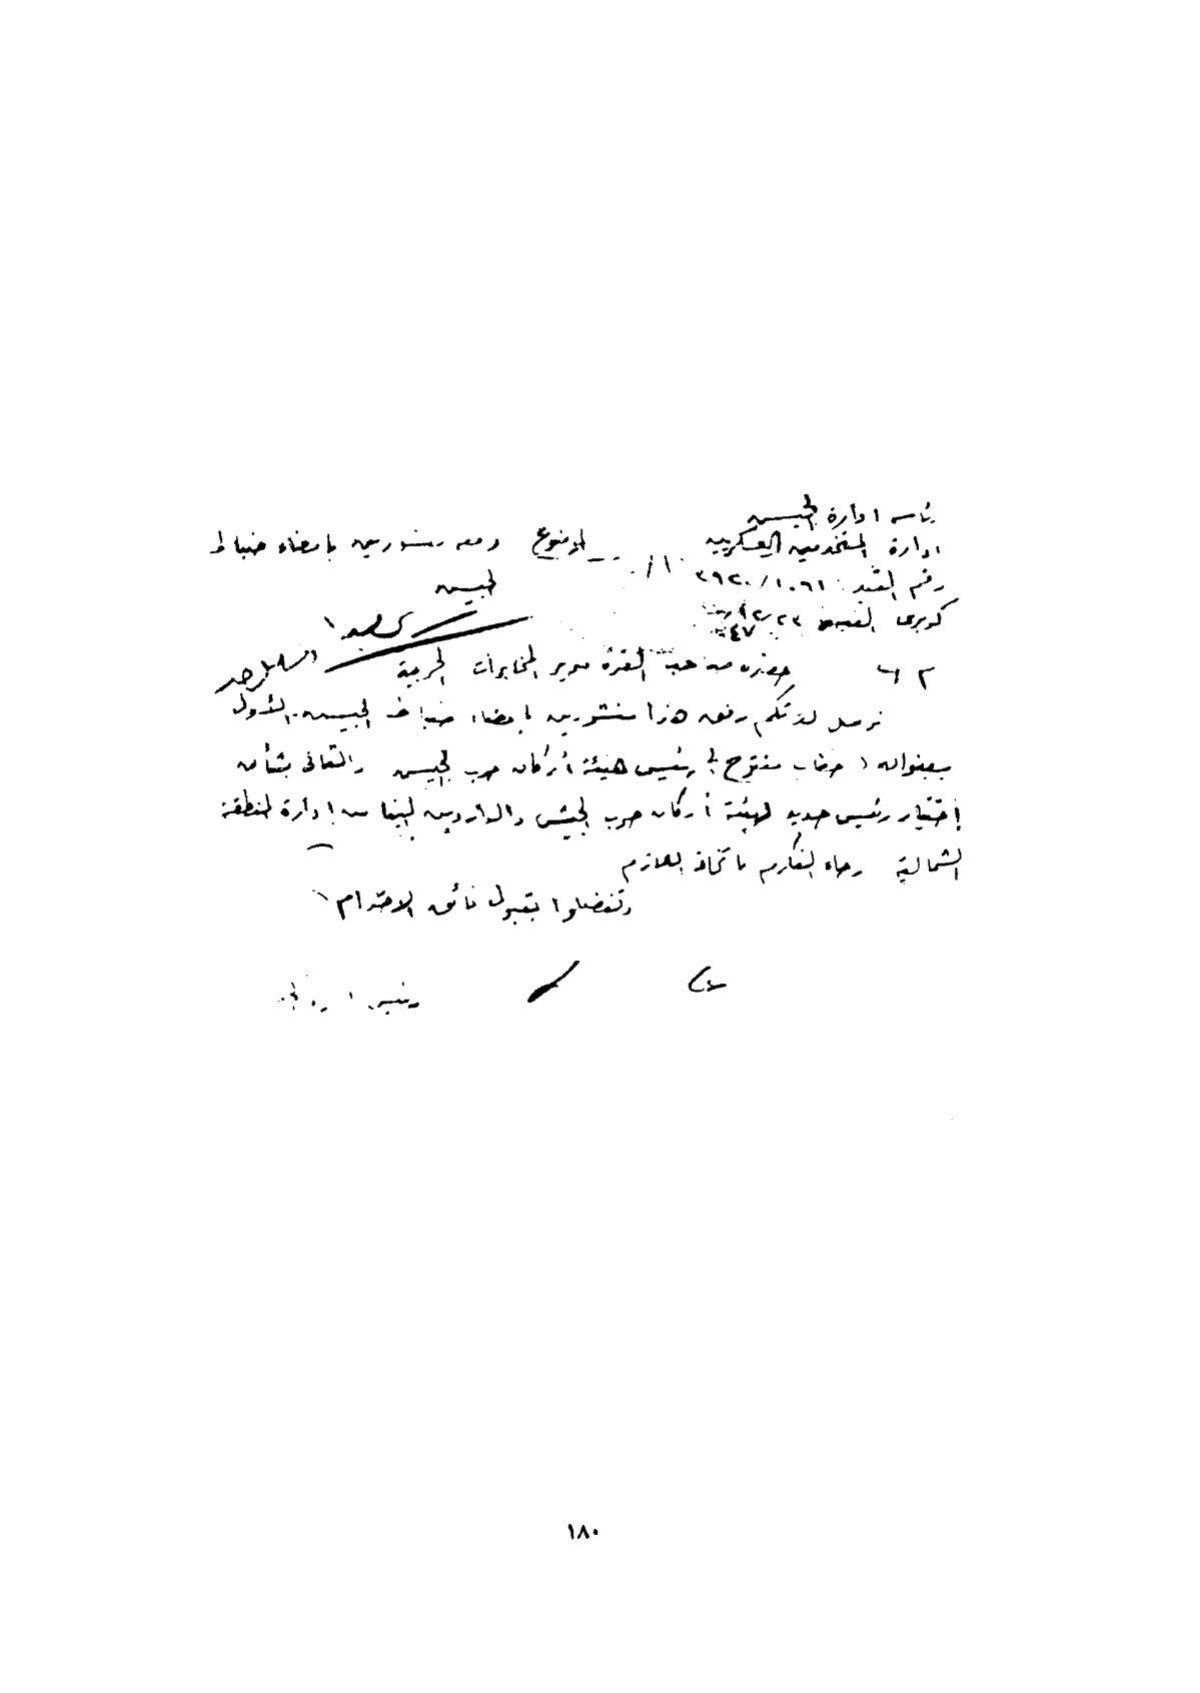 رئاسة ادارة الجيش
ادارة المستخدمين العسكريين
الموضوع ومعه منشورين بامضاء ضباط
الجيش
رقم القيد ٣٩٢٠/١٠٦١
كوبرى القبه ٢٣/١٢/٤٧
حضرة صاحب العزة مدير المخابرات الحربية
نرسل لعزتكم رفق هذا منشورين بامضاء ضباط الجيش الأول
بعنوان (خطاب مفتوح الى رئيس هيئة أركان حرب الجيش والثانى بشأن
إختيار رئيس جديد لهيئة أركان حرب الجيش والواردين الينا من إدارة المنطقة
الشمالية رجاء التكرم باتخاذ اللازم
وتفضلوا بقبول فائق الاحترام
رئيس
١٨٠